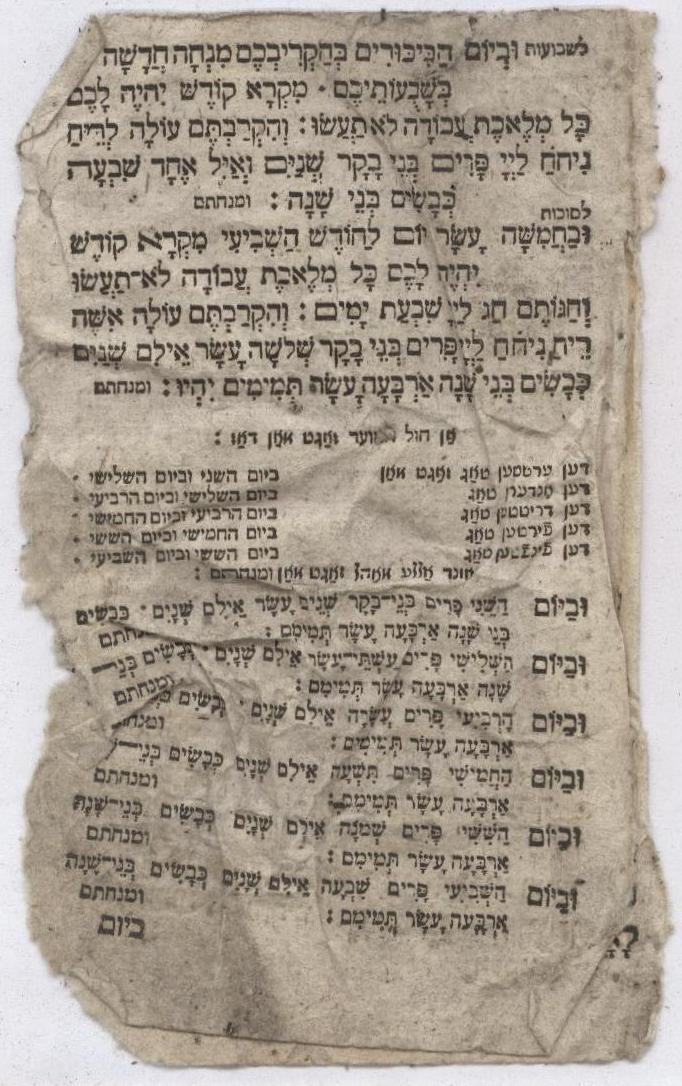 לשבועות וּבְיוֹם הַבִּיכּוּרִים בְּהַקְרִיבְכֶם מִנְחָה חֲדָשָׁה
בְּשָׁבֻעוֹתֵיכֶם · מִקְרָא קוֹדֶשׁ יִהְיֶה לָכֶם
כָּל מְלֶאכֶת עֲבוֹדָה לֹא תַעֲשׂוּ : וְהִקְרַבְתֶּם עוֹלָה לְרֵיחַ
נִיחֹחַ לַיְיָ פָּרִים בְּנֵי בָקָר שְׁנַיִם וְאַיִל אֶחָד שִׁבְעָה
כְּבָשִׂים בְּנֵי שָׁנָה : ומנחתם
לסוכות
וּבַחֲמִשָּׁה עָשָׂר יוֹם לַחוֹדֶשׁ הַשְּׁבִיעִי מִקְרָא קוֹדֶשׁ
יִהְיֶה לָכֶם כָּל מְלֶאכֶת עֲבוֹדָה לֹא־תַעֲשׂוּ
וְחַגּוֹתֶם חַג לַיְיָ שִׁבְעַת יָמִים : וְהִקְרַבְתֶּם עוֹלָה אִשֶּׁה
רֵיחַ נִיחֹחַ לַיְיָ פָּרִים בְּנֵי בָקָר שְׁלֹשָׁה עָשָׂר אֵילִם שְׁנַיִם
כְּבָשִׂים בְּנֵי שָׁנָה אַרְבָּעָה עָשָׂר תְּמִימִים יִהְיוּ : ומנחתם
חול זאגט מאן דאז :
דען ערשטען טאג זאגט מאן ביום השני וביום השלישי ·
דען אנדערן טאג ביום השלישי וביום הרביעי ·
דען דריטטן טאג ביום הרביעי וביום החמישי ·
דען פירטען טאג ביום החמישי וביום הששי ·
דען פינפטען טאג ביום הששי וביום השביעי ·
אונד זאגט מאן ומנחתם :
וּבַיּוֹם הַשֵּׁנִי פָּרִים בְּנֵי־בָקָר שְׁנֵים עָשָׂר אֵילִם שְׁנָיִם · כְּבָשִׂים
בְּנֵי שָׁנָה אַרְבָּעָה עָשָׂר תְּמִימִם : ומנחתם
וּבַיּוֹם הַשְּׁלִישִׁי פָּרִים עַשְׁתֵּי־עָשָׂר אֵילִם שְׁנָיִם · כְּבָשִׂים בְּנֵי־
שָׁנָה אַרְבָּעָה עָשָׂר תְּמִימִם : ומנחתם
וּבַיּוֹם הָרְבִיעִי פָּרִים עֲשָׂרָה אֵילִם שְׁנָיִם · כְּבָשִׂים
אַרְבָּעָה עָשָׂר תְּמִימִם : ומנחתם
וּבַיּוֹם הַחֲמִישִׁי פָּרִים תִּשְׁעָה אֵילִם שְׁנָיִם כְּבָשִׂים בְּנֵי־
אַרְבָּעָה עָשָׂר תְּמִימִם : ומנחתם
וּבַיּוֹם הַשִּׁשִּׁי פָּרִים שְׁמֹנָה אֵילִם שְׁנָיִם כְּבָשִׂים בְּנֵי־שָׁנָה
אַרְבָּעָה עָשָׂר תְּמִימִם : ומנחתם
וּבַיּוֹם הַשְּׁבִיעִי פָּרִים שִׁבְעָה אֵילִם שְׁנָיִם כְּבָשִׂים בְּנֵי־שָׁנָה
אַרְבָּעָה עָשָׂר תְּמִימִם : ומנחתם
ביום